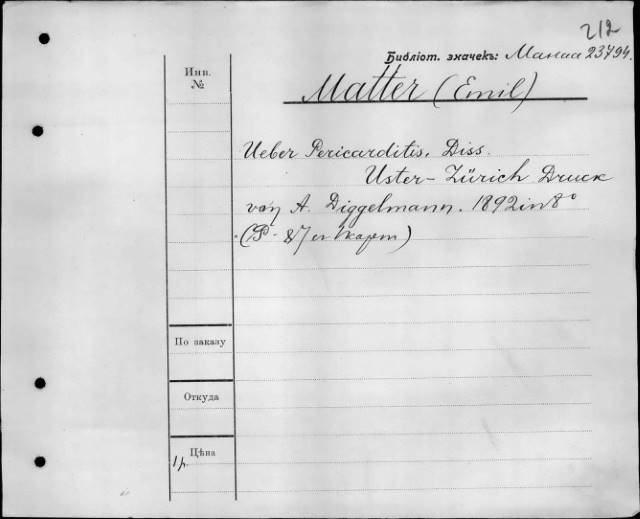 212
Библіот. значекъ: Манаа 23794.
Инв.
№
Matter (Emil)
Ueber Pericarditis. Diss.
Uster - Zürich Druck
von A. Diggelmann. 1892 in 8°
По заказу
Откуда
Цѣна
1 р.